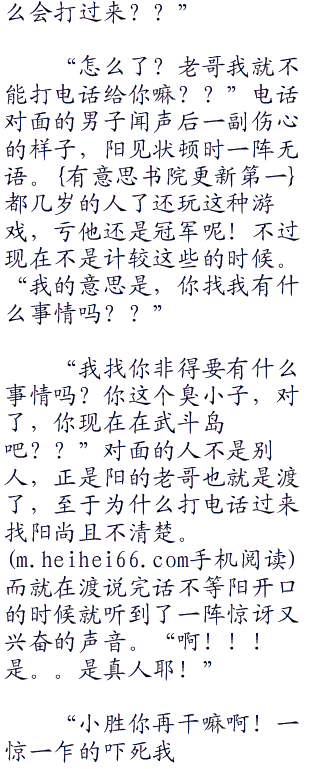 么会打过来？？”
“怎么了？老哥我就不
能打电话给你嘛？？”电话
对面的男子闻声后一副伤心
的样子，阳见状顿时一阵无
语。{有意思书院更新第一}
都几岁的人了还玩这种游
戏，亏他还是冠军呢！不过
现在不是计较这些的时候。
“我的意思是，你找我有什
么事情吗？？”
“我找你非得要有什么
事情吗？你这个臭小子，对
了，你现在在武斗岛
吧？？”对面的人不是别
人，正是阳的老哥也就是渡
了，至于为什么打电话过来
找阳尚且不清楚。
(m.heihei66.com手机阅读)
而就在渡说完话不等阳开口
的时候就听到了一阵惊讶又
兴奋的声音。“啊！！！
是。。是真人耶！”
“小胜你再干嘛啊！一
惊一乍的吓死我